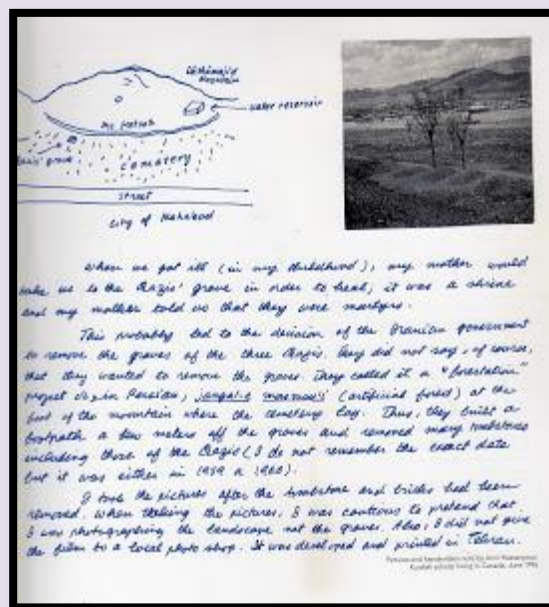 Mountain
water reservoir
grave
Cemetery
street
City of Mahabad
When we got ill (in my childhood), my mother would
take us to the Qazis' grave in order to heal; it was a shrine
and my mother told us that they were martyrs.
This probably led to the decision of the Iranian government
to remove the graves of the three Qazis. They did not say, of course,
that they wanted to remove the graves. They called it a "forestation"
project or, in Persian, (artificial forest) at the
foot of the mountain where the cemetery lay. Thus, they built a
footpath a few meters off the graves and removed many tombstones
including those of the Qazis (I do not remember the exact date
but it was either in 1959 or 1960).
I took the pictures after the tombstone and bricks had been
removed. When taking the pictures, I was cautious to pretend that
I was photographing the landscape not the graves. Also, I did not give
the film to a local photo shop. It was developed and printed in Tehran.
Kurdish scholar living in Canada, June 1996